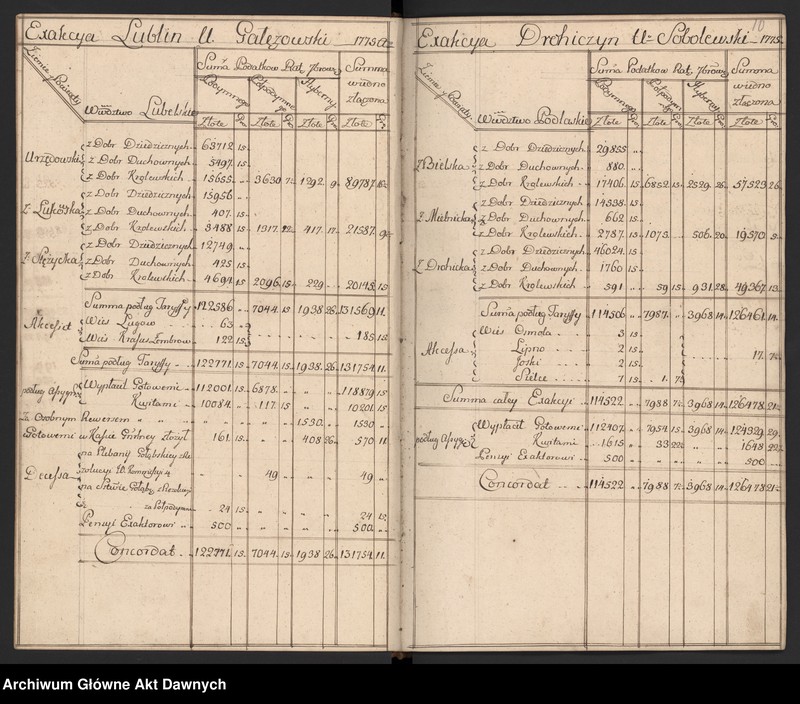 Exakcya Lublin U. Gałęzowski 1775 A
Ziemie Powiaty
Suma Podatkow Rat. 7browe
Summa wiedno złączona
Wdztwo Lubelskie
Podymnego Hyberny
Złote Gr. Złote Gr. Złote Gr. Złote Gr.
Urzędowski z Dobr Dziedzicznych 63712 15
z Dobr Duchownych 5497 15
z Dobr Krolewskich 15655 3630 7½ 1292 9 89787
z Łukowska z Dobr Dziedzicznych 15956
z Dobr Duchownych 407 15
z Dobr Krolewskich 3488 15 1317 22 417 17 21587
z Stężycka z Dobr Dziedzicznych 12749
z Dobr Duchownych 425 15
z Dobr Krolewskich 4694 15 2096 15 229 20145 15
Summa podług Taryffy 122586 7044 15 1938 26 131569 11
Akcessa Wieś Ługow 63
Wieś 122 15 185 15
Suma podług Taryffy 122771 15 7044 15 1938 26 131754 11
podług Wypłacił Gotowemi 112001 15 6878 118879 15
Kwitami 10084 117 15 10201 15
Za Osobnym Rewersem 1530 1530
Gotowemi w Kasie Głowney złożył 161 15 408 26 570 11
Decessa na Plebany
49 49
24 15 24 15
Pensyi Exaktorowi 500 500
Concordat 122771 15 7044 15 1938 26 131754 11
10
Exakcya Drohiczyn U Sobolewski 1775
Ziemie Powiaty
Suma Podatkow Rat. 7browe
Summa wiedno złaczona
Wdztwo Podlaskie
Podymnego Hyberny
Złote Gr. Złote Gr. Złote Gr. Złote Gr.
z Bielska z Dobr Dziedzicznych 29855
z Dobr Duchownych 880
z Dobr Krolewskich 17406 15 6852 15 2529 26 57523 26
z Mielnicka z Dobr Dziedzicznych 14538 15
z Dobr Duchownych 662 15
z Dobr Krolewskich 2787 15 1075 506 20 19570
z Drohicka z Dobr Dziedzicznych 46024 15
z Dobr Duchownych 1760 15
z Dobr Krolewskich 591 59 15 931 28 49367 13
Suma podług Taryffy 114506 7987 3968 14 126461 14
Akcessa Wieś Osmola 3 15
Lipno 2 15
Joski 2 15
7 15 1 7½ 17 7½
Summa całey Exakcyi 114522 7988 7½ 3968 14 126478 21½
Wypłacił Gotowemi 112407 7954 15 3968 14 124329 29
podług Kwitami 1615 33 22½ 1648 22½
Pensyi Exaktorowi 500 500
Concordat 114522 7988 7½ 3968 14 126478 21½
Archiwum Główne Akt Dawnych